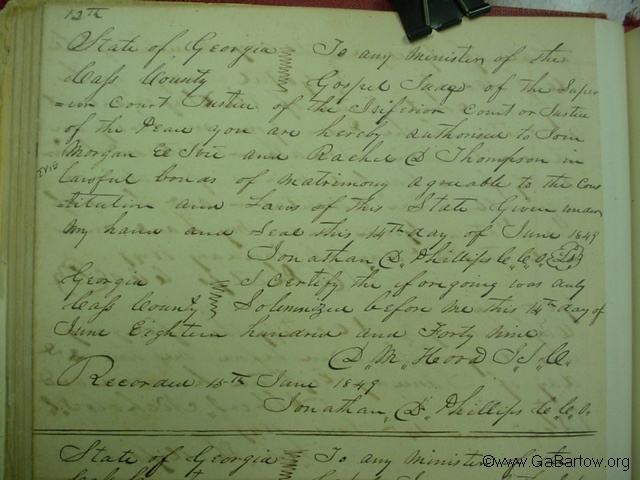 12th
State of Georgia To any Minister of the
Cass County Gospel Judge of the Super
=ior Court Justice of the Inferior Court or Justice
of the Peace you are hereby authorised to Join
Morgan and Rachel D Thompson in
lawful bonds of matrimony agreable to the Cons
=titution and Laws of this State Given under
my hand and Seal this 14th day of June 1849
Jonathan D. Phillips C.C.O. L.S.
Georgia I certify the foregoing was duly
Cass County Solemnized before me this 14th day of
June Eighteen hundred and Forty nine
D, M, Hood J.I.C.
Recorded 15th June 1849
Jonathan, D, Phillips C.C.O.
State of Georgia To any Minister of the
©www.GaBartow.org